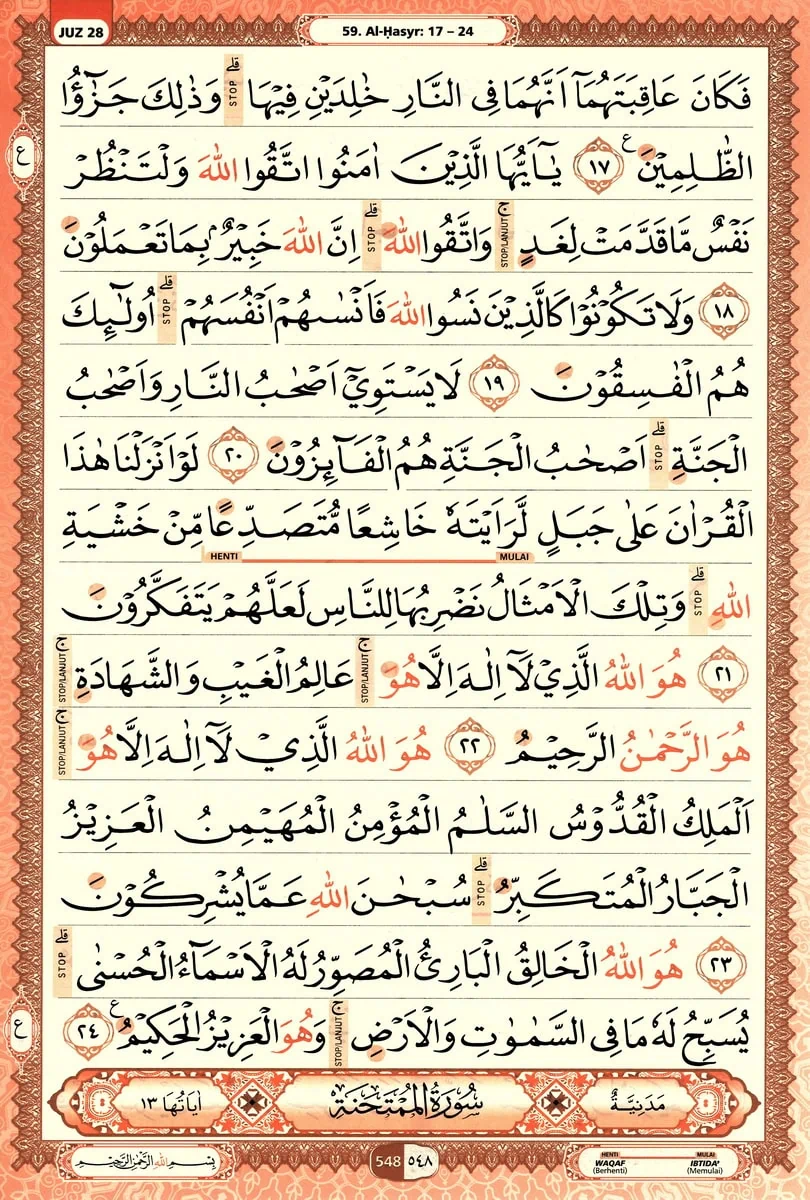 JUZ 28
59. Al-Ḥasyr: 17 – 24
فَكَانَ عَاقِبَتَهُمَآ اَنَّهُمَا فِى النَّارِ خٰلِدَيْنِ فِيْهَاۗ STOP وَذٰلِكَ جَزٰۤؤُا
الظّٰلِمِيْنَ ࣖ ١٧ يٰٓاَيُّهَا الَّذِيْنَ اٰمَنُوا اتَّقُوا اللّٰهَ وَلْتَنْظُرْ
نَفْسٌ مَّا قَدَّمَتْ لِغَدٍۚ STOP/LANJUT وَاتَّقُوا اللّٰهَ ۗ STOP اِنَّ اللّٰهَ خَبِيْرٌ ۢبِمَا تَعْمَلُوْنَ
١٨ وَلَا تَكُوْنُوْا كَالَّذِيْنَ نَسُوا اللّٰهَ فَاَنْسٰىهُمْ اَنْفُسَهُمْۗ STOP اُولٰۤىِٕكَ
هُمُ الْفٰسِقُوْنَ ١٩ لَا يَسْتَوِيْٓ اَصْحٰبُ النَّارِ وَاَصْحٰبُ
الْجَنَّةِۗ STOP اَصْحٰبُ الْجَنَّةِ هُمُ الْفَاۤىِٕزُوْنَ ٢٠ لَوْ اَنْزَلْنَا هٰذَا
الْقُرْاٰنَ عَلٰى جَبَلٍ لَّرَاَيْتَهٗ خَاشِعًا مُّتَصَدِّعًا مِّنْ خَشْيَةِ
MULAI HENTI
اللّٰهِ ۗ STOP وَتِلْكَ الْاَمْثَالُ نَضْرِبُهَا لِلنَّاسِ لَعَلَّهُمْ يَتَفَكَّرُوْنَ
٢١ هُوَ اللّٰهُ الَّذِيْ لَآ اِلٰهَ اِلَّا هُوَۚ STOP/LANJUT عَالِمُ الْغَيْبِ وَالشَّهَادَةِۚ STOP/LANJUT
هُوَ الرَّحْمٰنُ الرَّحِيْمُ ٢٢ هُوَ اللّٰهُ الَّذِيْ لَآ اِلٰهَ اِلَّا هُوَۚ STOP/LANJUT
اَلْمَلِكُ الْقُدُّوْسُ السَّلٰمُ الْمُؤْمِنُ الْمُهَيْمِنُ الْعَزِيْزُ
الْجَبَّارُ الْمُتَكَبِّرُۗ STOP سُبْحٰنَ اللّٰهِ عَمَّا يُشْرِكُوْنَ
٢٣ هُوَ اللّٰهُ الْخَالِقُ الْبَارِئُ الْمُصَوِّرُ لَهُ الْاَسْمَاۤءُ الْحُسْنٰىۗ STOP
يُسَبِّحُ لَهٗ مَا فِى السَّمٰوٰتِ وَالْاَرْضِۚ STOP/LANJUT وَهُوَ الْعَزِيْزُ الْحَكِيْمُ ࣖ ٢٤
مَدَنِيَّةٌ سُوْرَةُ الْمُمْتَحَنَةِ اٰيَاتُهَا ١٣
ع
ع
بِسْمِ اللّٰهِ الرَّحْمٰنِ الرَّحِيْمِ
548 ٥٤٨
HENTI MULAI
WAQAF (Berhenti) IBTIDA' (Memulai)